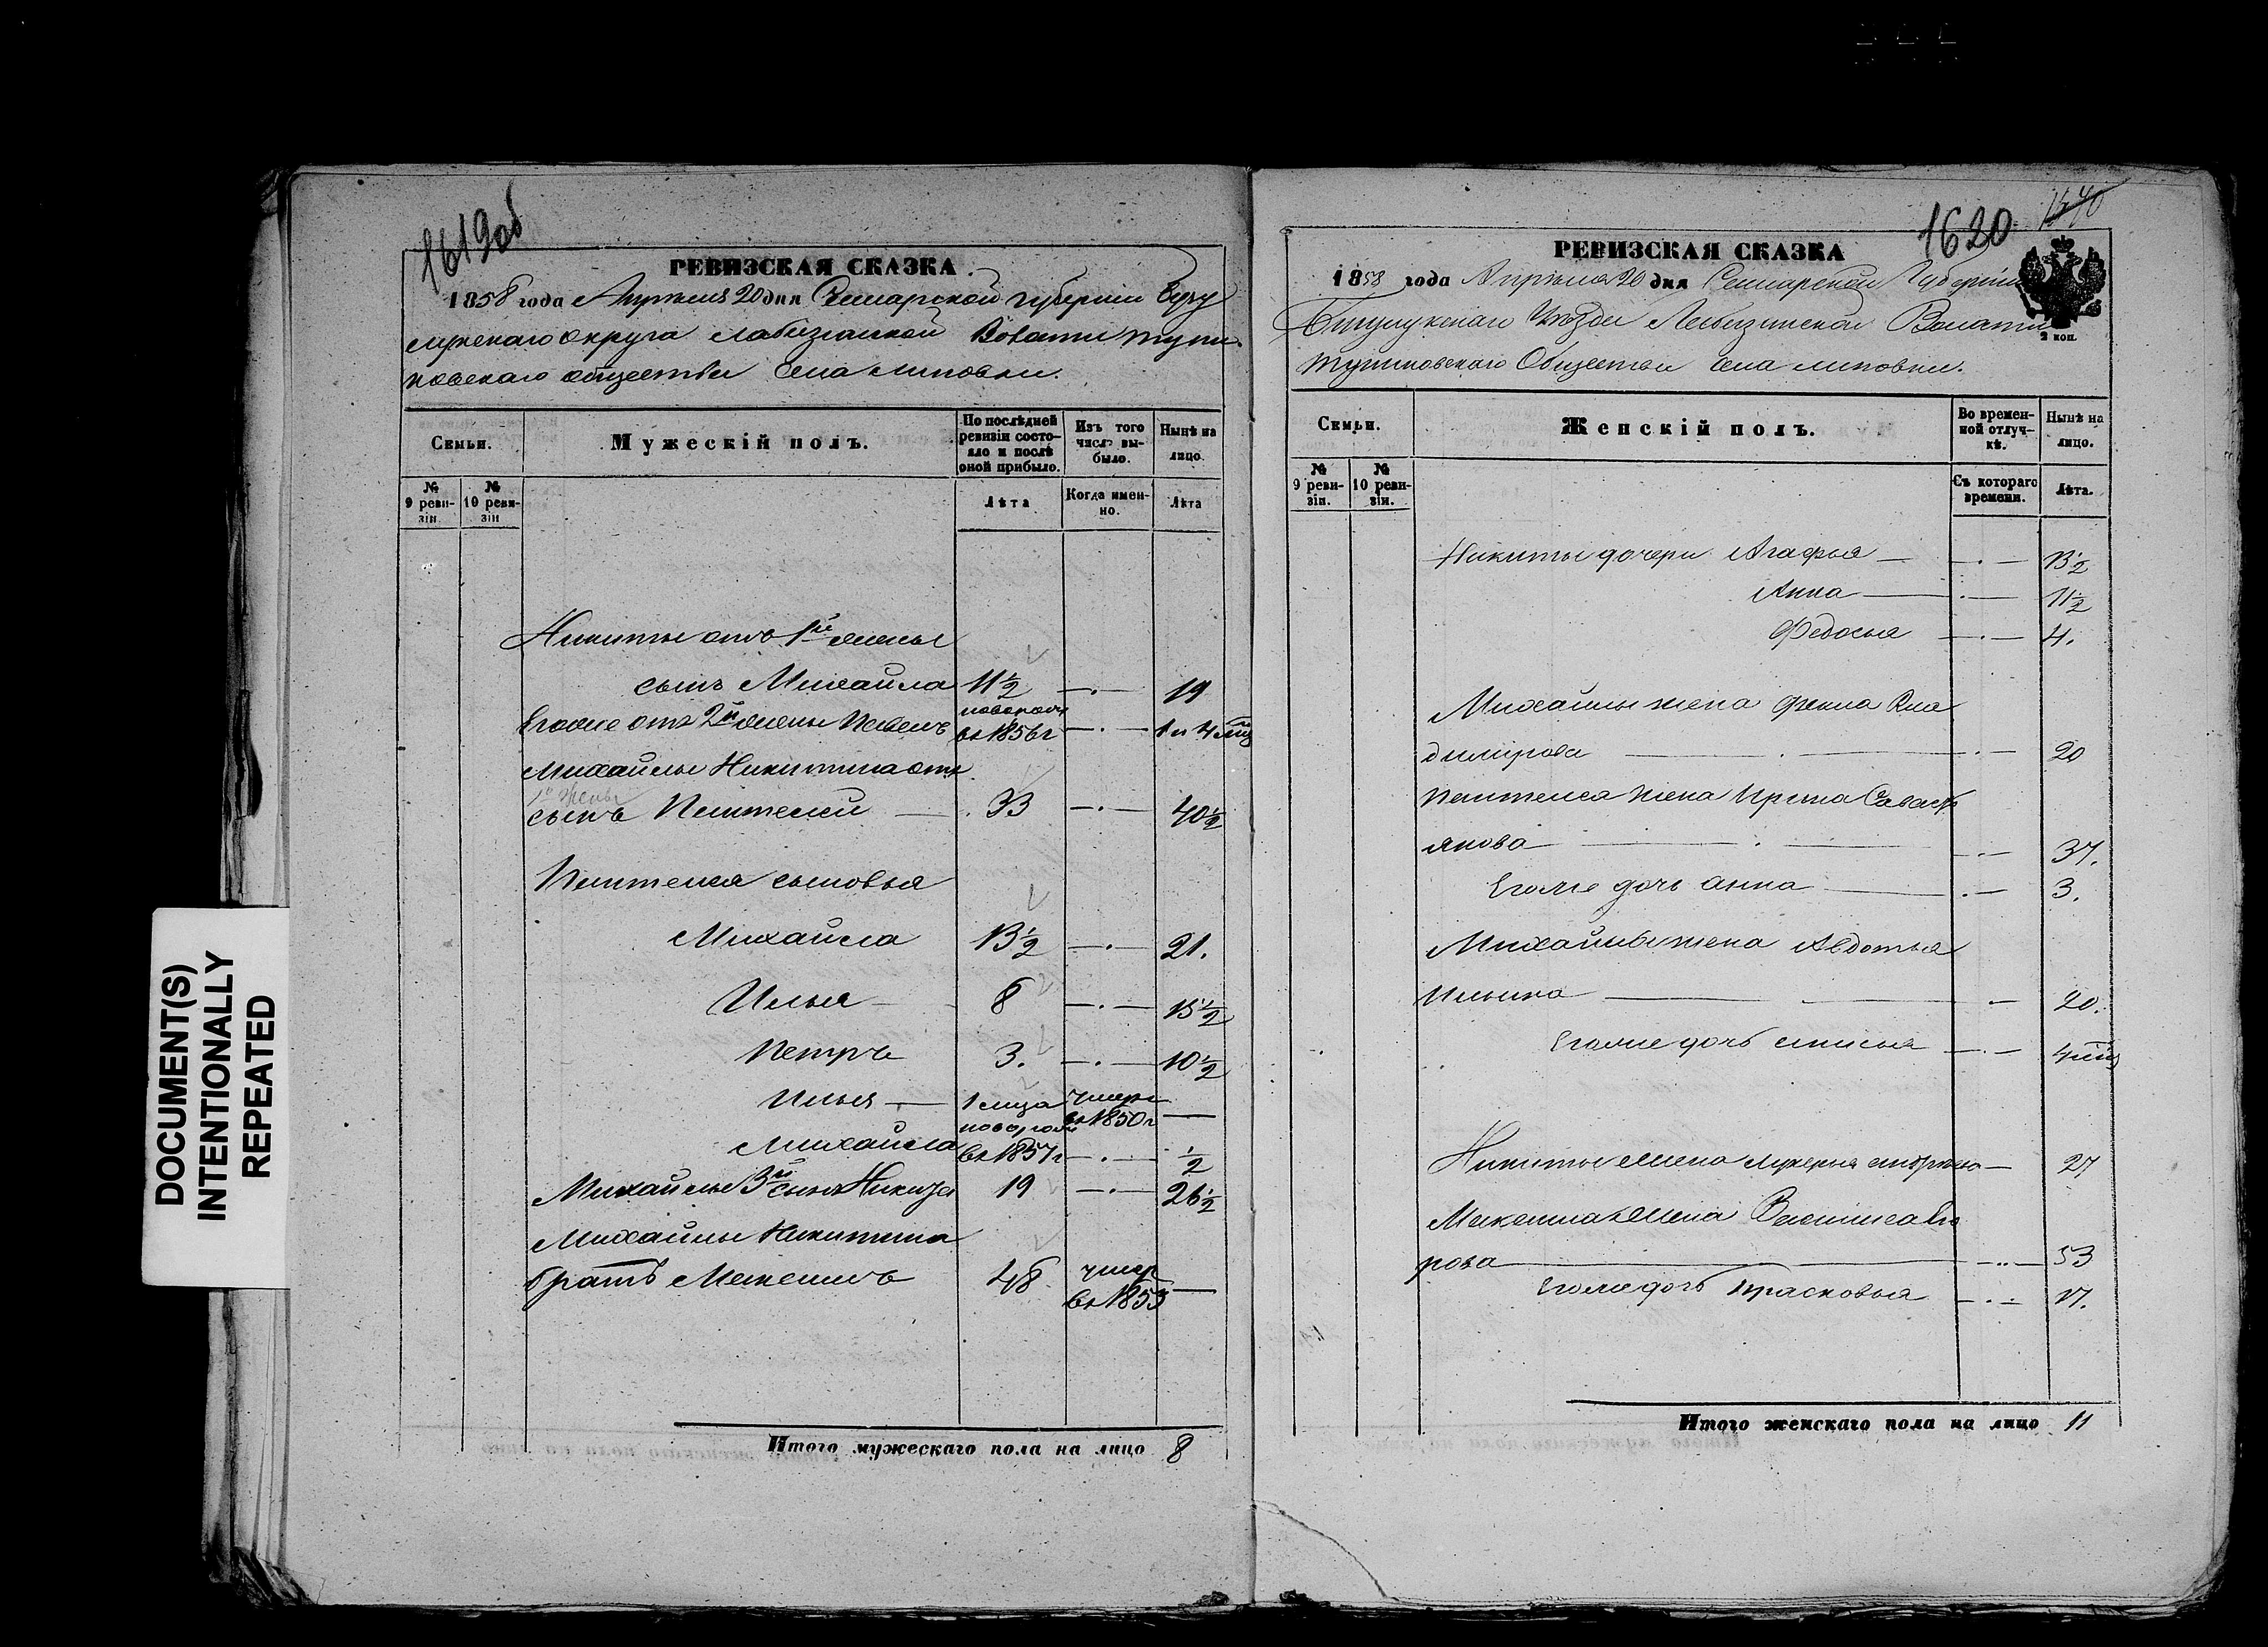 DOCUMENT(S)
INTENTIONALLY
REPEATED
1619об
РЕВИЗСКАЯ СКАЗКА.
1858 года Апреля 20 дня Самарской губернии Бузу
лукскаго округа Лабазинской Волости тупи
ковскаго общества Села Липовки.
Семьи.
Мужескій полъ.
По послѣдней ревизіи состо-
яло и послѣ оной прибыло.
Изъ того числа вы-
было.
Нынѣ на лицо.
№ 9 реви-
зіи.
№ 10 реви-
зіи
Лѣта
Когда имен-
но.
Лѣта
Никиты отъ 1й жены
сынъ Михайла 11½ —.— 19
новорож
Егоже отъ 2й жены Павелъ въ 1856г —.— 1 и 4 мц
Михайлы Никитина отъ
1й жены
сынъ Пантелей — 33 —.— 40½
Пантелея сыновья
Михайла 13½ —.— 21.
Илья — 8 —.— 15½
Петръ 3. —.— 10½
Илья — 1 мца умеръ въ 1850г —
новорож
Михайла въ 1857г —.— ½
Михайлы 3й сынъ Никита 19 —.— 26½
Михайлы Никитина
братъ Максимъ 48 умер въ 1855 —
Итого мужескаго пола на лицо 8
1620
РЕВИЗСКАЯ СКАЗКА
1858 года Апреля 20 дня Самарской Губерніи
Бузулукскаго Уѣзда Лабазинской Волости
тупиковскаго Общества Села Липовки.
2 коп.
Семьи.
Женскій полъ.
Во времен-
ной отлуч-
кѣ.
Нынѣ на лицо.
№ 9 реви-
зіи.
№ 10 реви-
зіи.
Съ котораго времени.
Лѣта.
Никиты дочери Агафья — —.— 13½
Анна — —.— 11½
Федосья —.— 4.
Михайлы жена Фекла Вла
димірова — —.— 20
Пантелея жена Ирина Саваст
янова — —.— 37.
Егоже дочь Анна — .— 3.
Михайлы жена Авдотья
Ильина — — 20.
Егоже дочь —.— 4 мца
Никиты жена Лукерья — 27
Максима жена Василиса
рова — —..— 53
Егоже дочь Прасковья —.— 17.
Итого женскаго пола на лицо 11